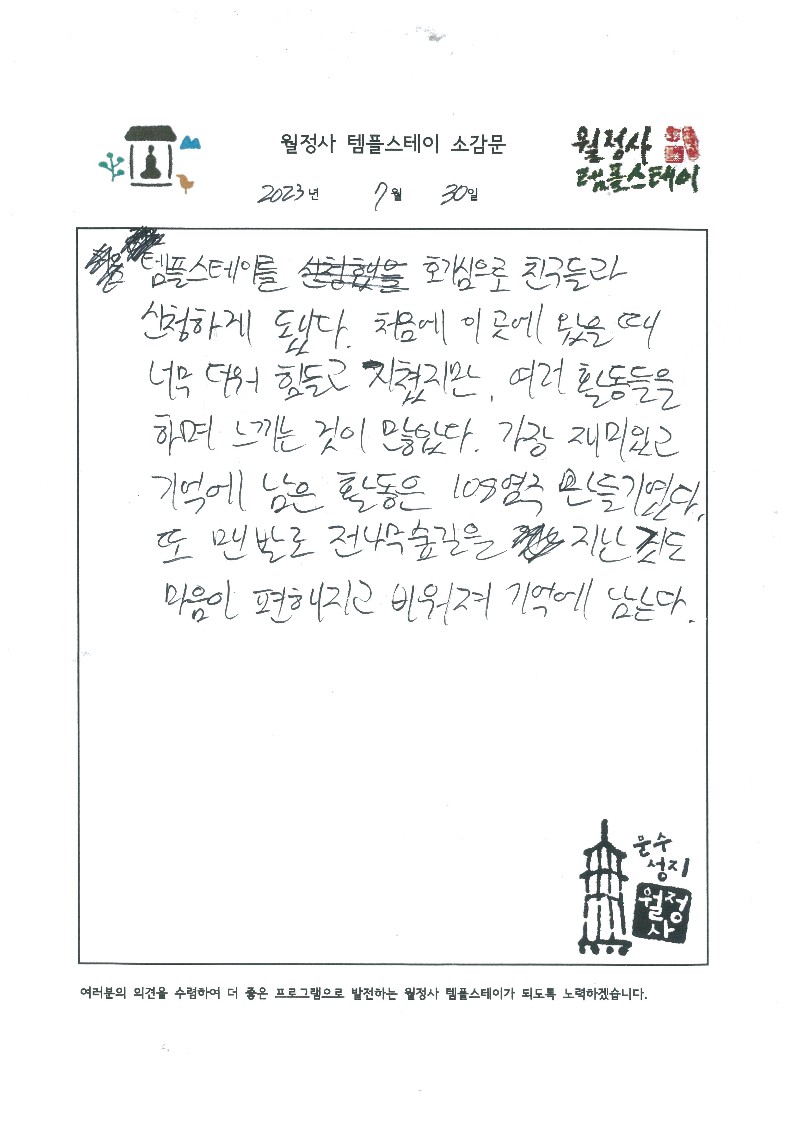 월정사 템플스테이 소감문
월정사
템플스테이
2023년 7월 30일
템플스테이를 신청했을 호기심으로 친구들과
신청하게 됬다. 처음에 이 곳에 왔을 때
너무 더워 힘들고 지쳤지만, 여러 활동들을
하며 느끼는 것이 많았다. 가장 재미있고
기억에 남은 활동은 108염주 만들기였다.
또 맨발로 전나무숲길을 지난 것도
마음이 편해지고 비워져 기억에 남는다.
문수
성지
월정
사
여러분의 의견을 수렴하여 더 좋은 프로그램으로 발전하는 월정사 템플스테이가 되도록 노력하겠습니다.